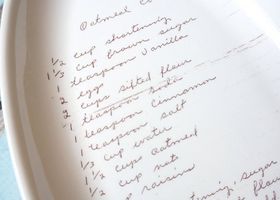 Oatmeal C
1/2 cup shortening
1 1/3 cup brown sugar
1 teaspoon vanilla
2 eggs
2 cups sifted flour
1 teaspoon soda
1 teaspoon cinnamon
1 teaspoon salt
1/3 cup water
cup oatmeal
1/2 cup nuts
cup raisins
shortening, sugar
flour